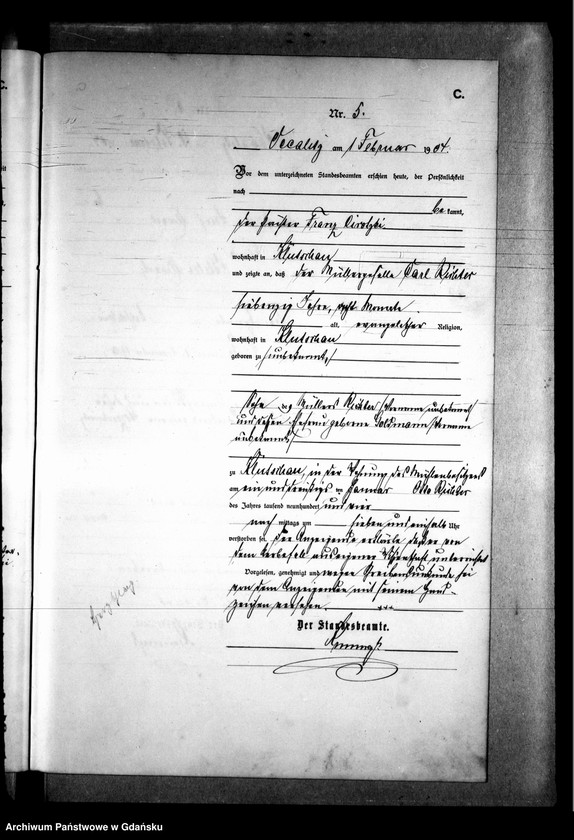 C.
Nr. 5.
Occalitz am 1 Februar 1904.
Vor dem unterzeichneten Standesbeamten erschien heute, der Persönlichkeit
nach
be kannt,
der Franz
wohnhaft in Klutschau
und zeigte an, daß der Müllergeselle Carl Richter
siebenzig Jahre, acht Monate
alt, evangelischer Religion,
wohnhaft in Klutschau
geboren zu (unbekannt)
Sohn des Müllers Richter (Vorname unbekannt)
und dessen Ehefrau geborene Goldmann (Vorname
unbekannt)
zu Klutschau, in der Wohnung des Mühlenbesitzers
Otto Richter
am ein und dreißigsten Januar
des Jahres tausend neunhundert und vier
nach mittags um sieben und einhalb Uhr
verstorben sei. Der Anzeigende erklärte, daß er von
dem Sterbefall aus eigener Wissenschaft unterrichtet sei.
Vorgelesen, genehmigt und wegen Schreibensunkunde
von dem Anzeigenden mit seinem Hand-
zeichen versehen. +++
Der Standesbeamte.
Archiwum Państwowe w Gdańsku